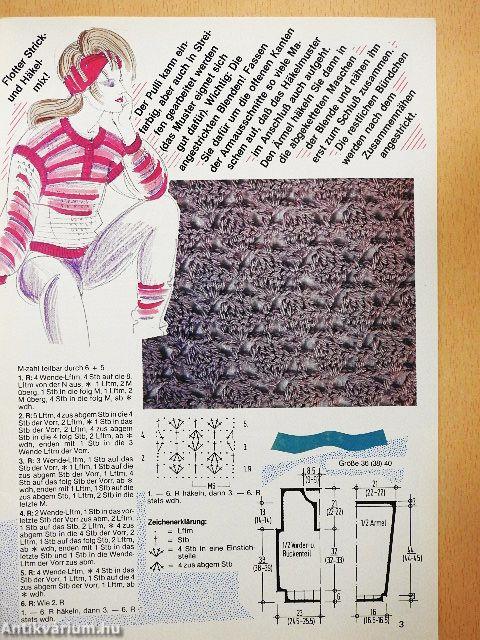 Flotter Strick-
und Häkel-
mix!
Der Pulli kann ein-
farbig, aber auch in Strei-
fen gearbeitet werden
(das Muster eignet sich
gut dafür). Wichtig: Die
angestrickten Blenden! Fassen
Sie dafür um die offenen Kanten
der Armausschnitte so viele Ma-
schen auf, daß das Häkelmuster
im Anschluß auch aufgeht.
Den Ärmel häkeln Sie dann in
die abgeketteten Maschen
der Blende und nähen ihn
erst zum Schluß zusammen.
Die restlichen Bündchen
werden nach dem
Zusammennähen
angestrickt.
M-zahl teilbar durch 6 + 5
1. R: 4 Wende-Lftm, 4 Stb auf die 8.
Lftm von der N aus, ∗ 1 Lftm, 2 M
überg, 1 Stb in die folg M, 1 Lftm, 2
M überg, 4 Stb in die folg M, ab ∗
wdh.
2. R: 5 Lftm, 4 zus abgem Stb in die 4
Stb der Vorr, 2 Lftm, ∗ 1 Stb in das
Stb der Vorr, 2 Lftm, 4 zus abgem
Stb in die 4 folg Stb, 2 Lftm, ab ∗
wdh, enden mit 1 Stb in die 3
Wende Lftm der Vorr.
3. R: 3 Wende-Lftm, 1 Stb auf das
Stb der Vorr, ∗ 1 Lftm, 1 Stb auf die
zus abgem Stb der Vorr, 1 Lftm, 4
Stb auf das folg Stb der Vorr, ab ∗
wdh, enden mit 1 Lftm, 1 Stb auf die
zus abgem Stb, 1 Lftm, 2 Stb in die
letzte M
4. R: 2 Wende-Lftm, 1 Stb in das vor-
letzte Stb der Vorr zus abm, 2 Lftm,
1 Stb auf das Stb, 2 Lftm, ∗ 4 zus
abgem Stb in die 4 Stb der Vorr, 2
Lftm, 1 Stb auf das folg Stb, 2 Lftm,
ab ∗ wdh, enden mit 1 Stb in das
letzte Stb und 1 Stb in die Wende
Lftm der Vorr zus abm.
5. R: 4 Wende-Lftm, ∗ 4 Stb in das
Stb der Vorr, 1 Lftm, 1 Stb auf die
zus abgem Stb der Vorr, 1 Lftm, ab
∗ wdh.
6. R: Wie 2. R
1. — 6. R häkeln, dann 3. — 6. R
stets wdh.
5.
4.
2.
1. R
MS
1. — 6. R häkeln, dann 3. — 6. R
stets wdh.
Zeichenerklärung:
= Lftm
= Stb
= 4 Stb in eine Einstich-
stelle
= 4 zus abgem Stb
Größe 36 (38) 40
21
(22-22)
21
(22-22)
13
(14-14)
38
(38-35)
32
(32-33)
1/2 Vorder- u.
Rückenteil
1/2 Ärmel
44
(44-45)
23
(24,5-25,5)
16
(16,5-16,5)
3
Antikvarium.hu